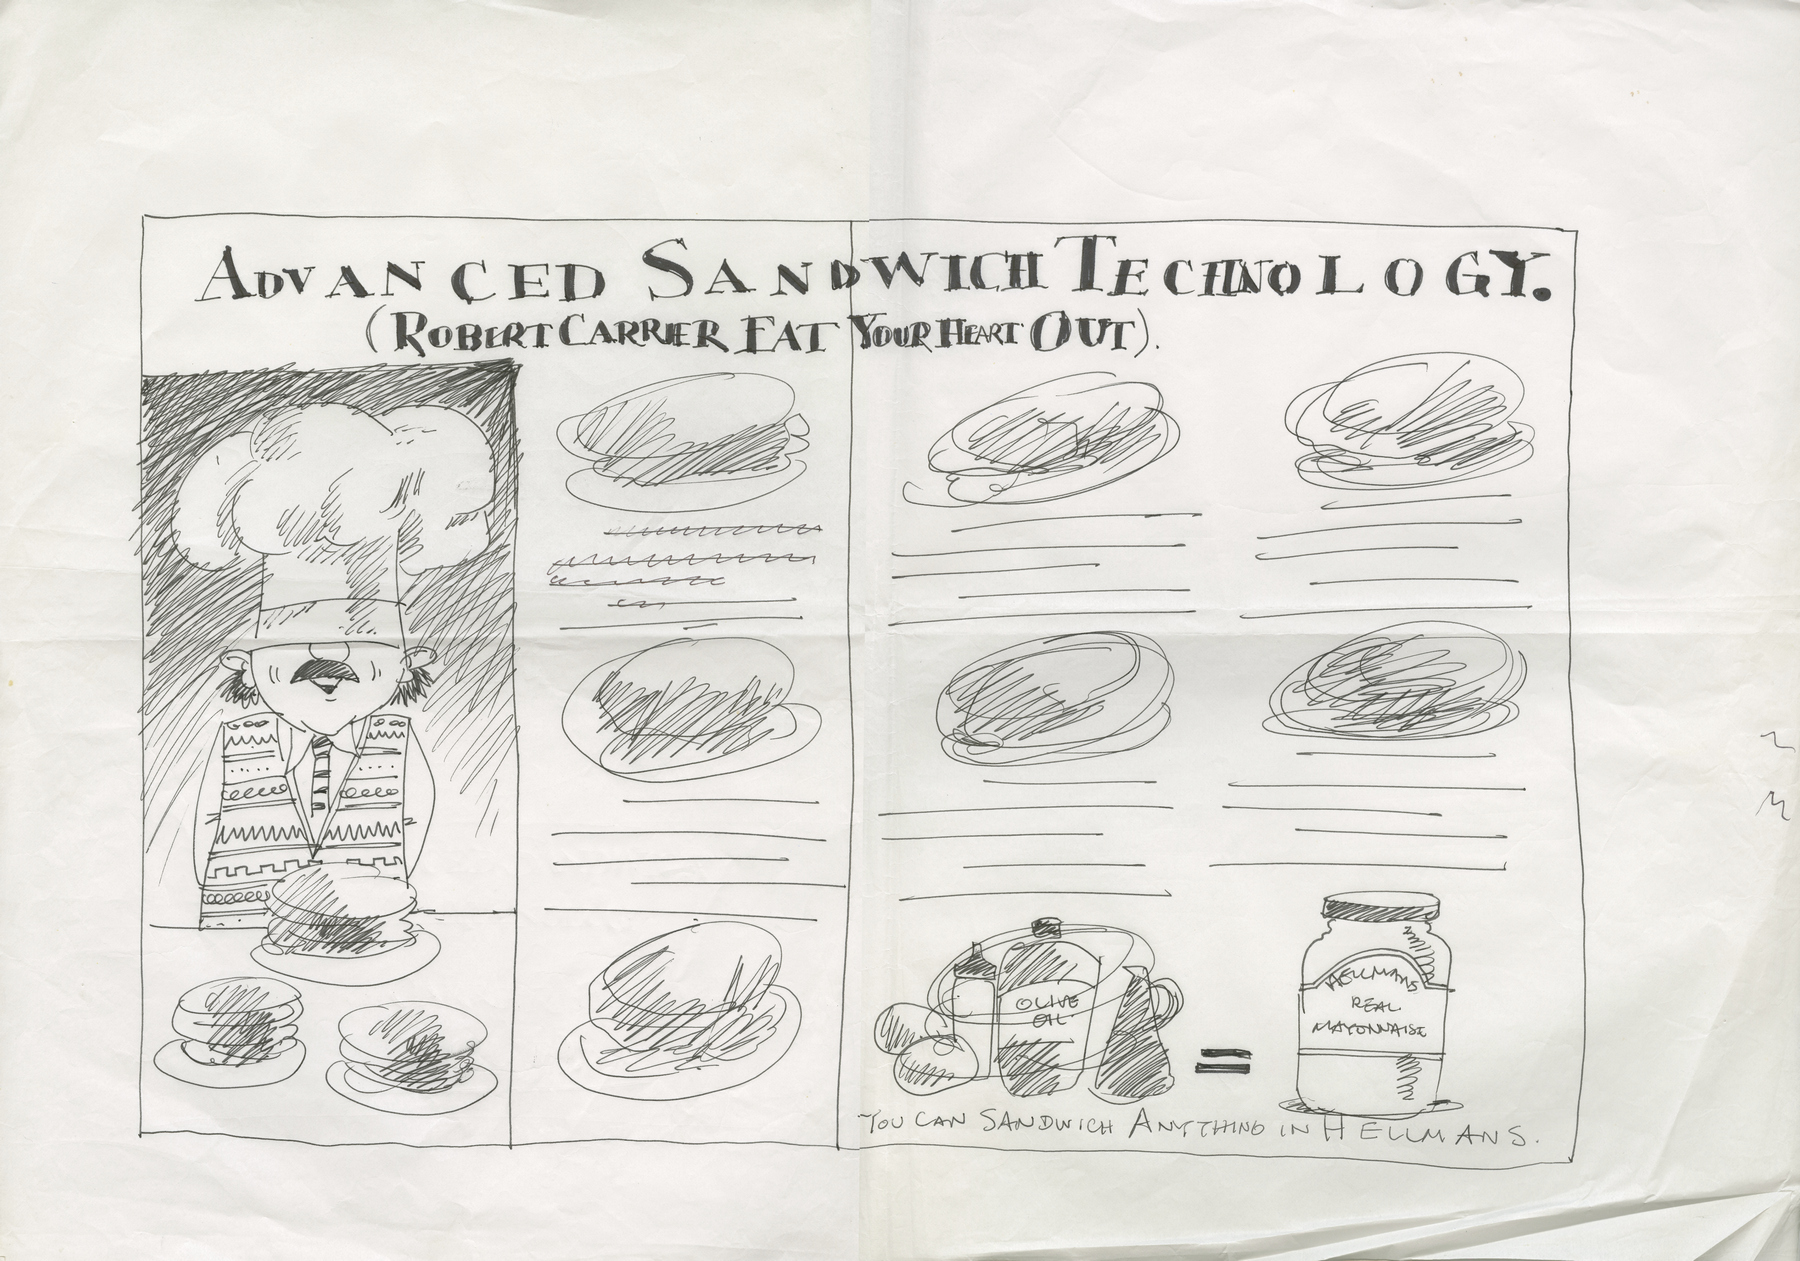 ADVANCED SANDWICH TECHNOLOGY.
(ROBERT CARRIER EAT YOUR HEART OUT).
OLIVE
OIL
HELLMANS
REAL
MAYONNAISE
YOU CAN SANDWICH ANYTHING IN HELLMANS.